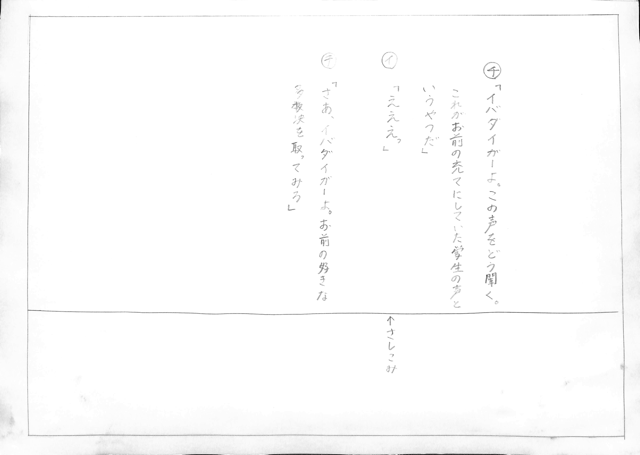 チ「イバダイガーよ。この声をどう聞く。
これがお前の充てにしていた学生の声と
いうやつだ」
イ「えええっ」
↑さしこみ
チ「さあ、イバダイガーよ。お前の好きな
多数決を取ってみろ」